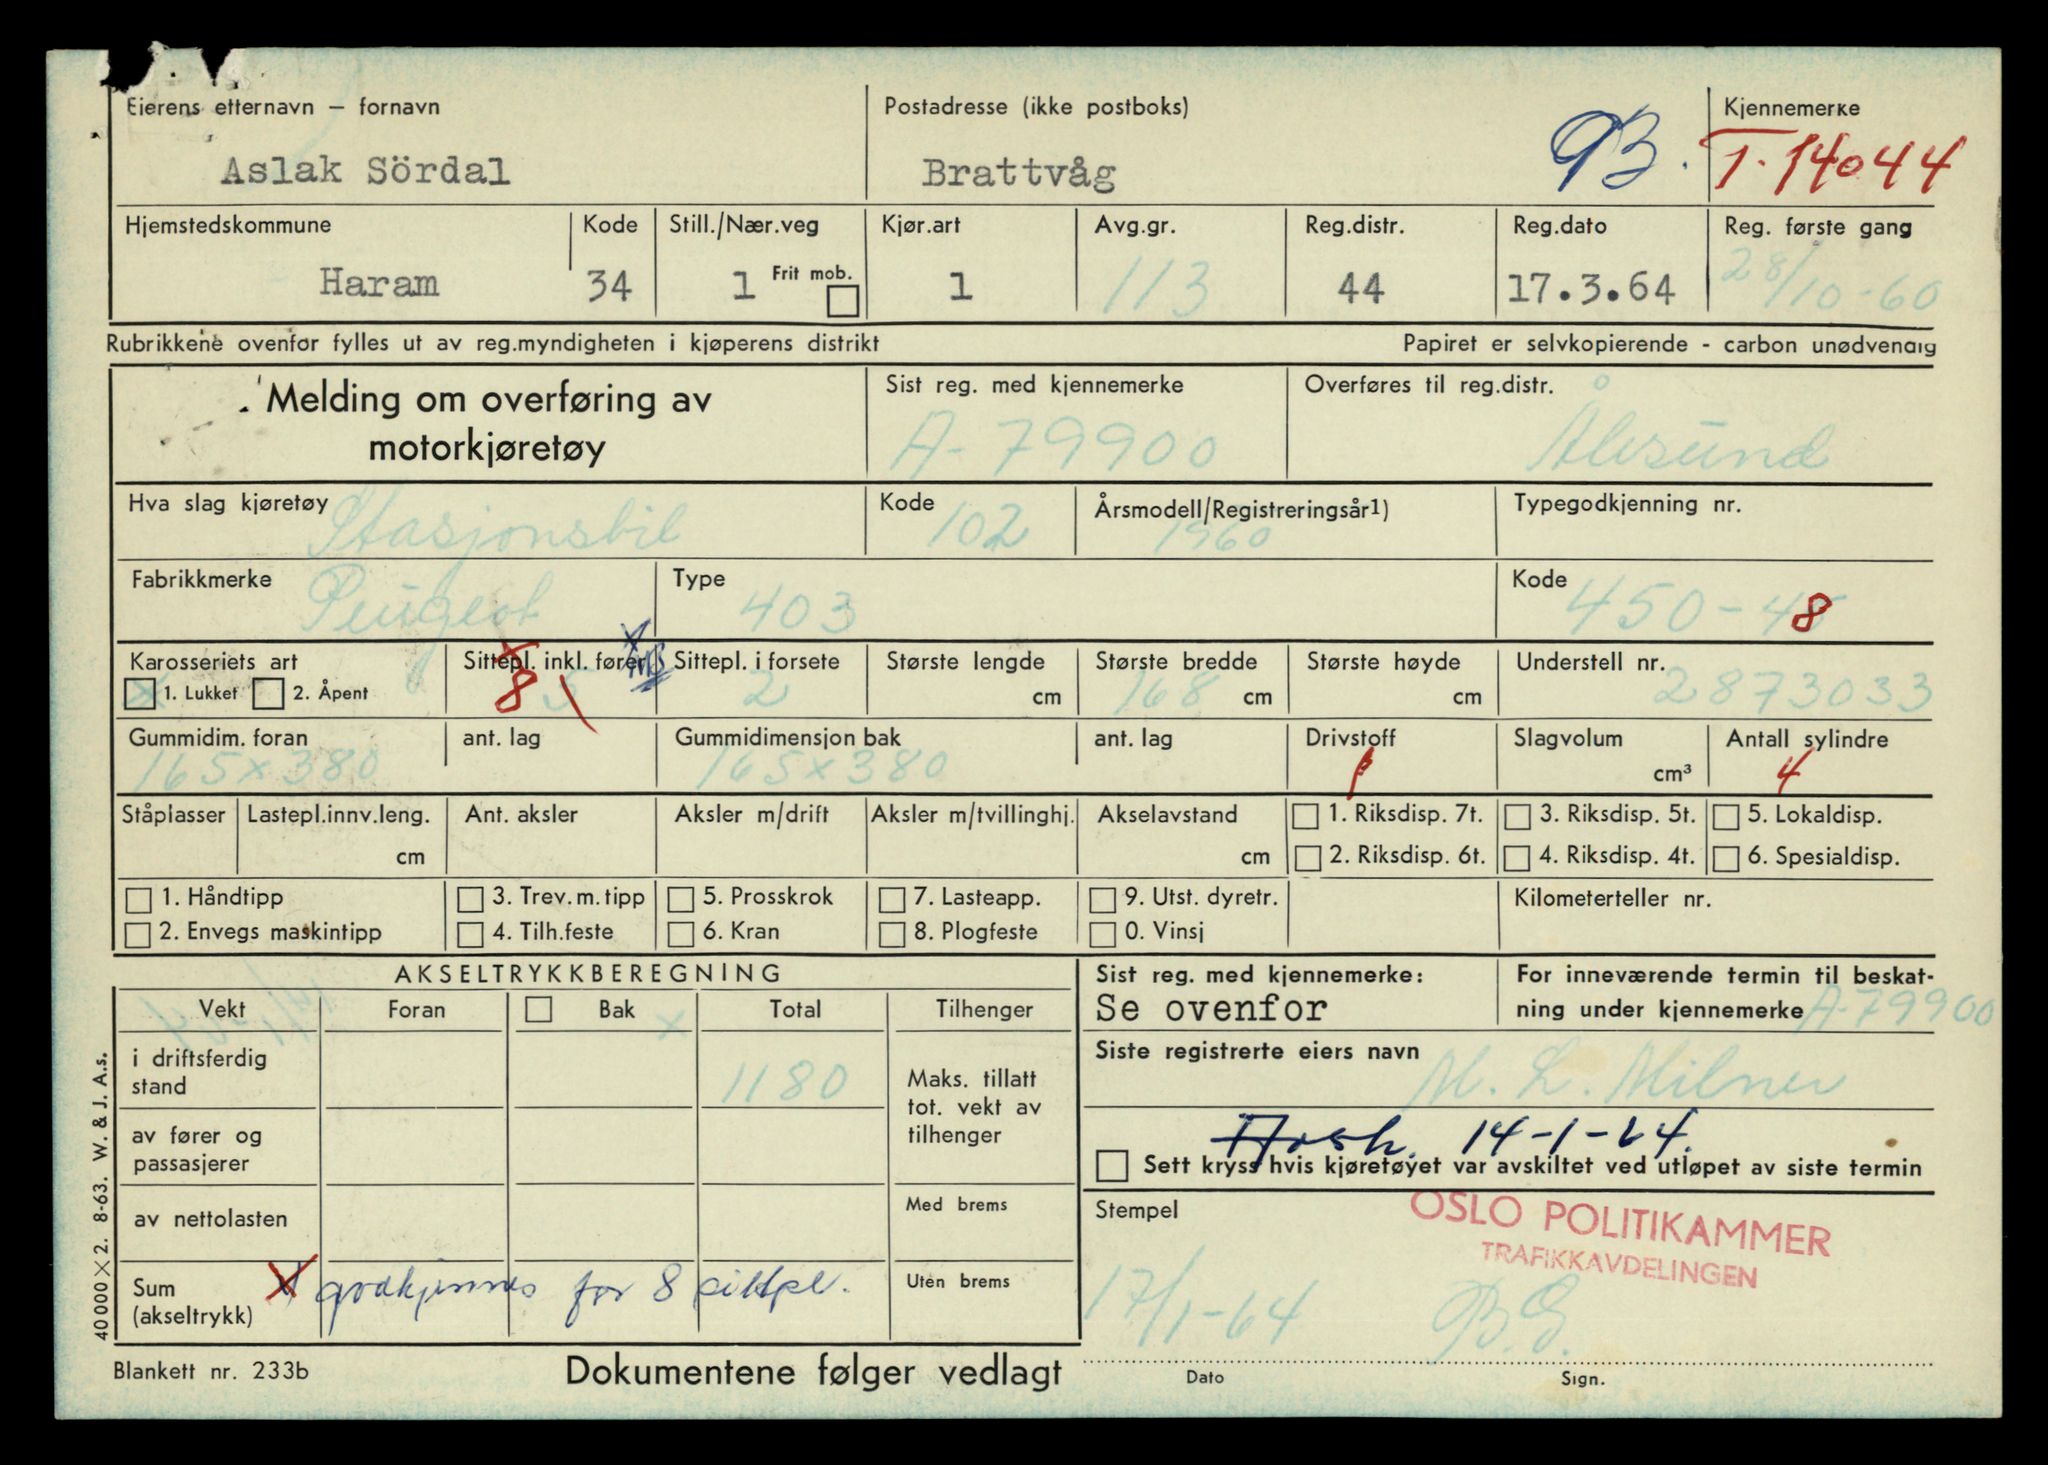 Eierens etternavn – fornavn Postadresse (ikke postboks) Kjennemerke
Aslak Sördal Brattvåg T-14044
Hjemstedskommune Kode Still./Nær.veg Kjør.art Avg.gr. Reg.distr. Reg.dato Reg. første gang
Haram 34 1 Frit mob. 1 113 44 17.3.64 28/10-60
Rubrikkene ovenfor fylles ut av reg.myndigheten i kjøperens distrikt Papiret er selvkopierende - carbon unødvendig
Melding om overføring av
motorkjøretøy
Sist reg. med kjennemerke Overføres til reg.distr.
A-79900 Ålesund
Hva slag kjøretøy Kode Årsmodell/Registreringsår1) Typegodkjenning nr.
Stasjonsbil 102 1960
Fabrikkmerke Type Kode
Peugeot 403 450-48
Karosseriets art Sittepl. inkl. fører Sittepl. i forsete Største lengde Største bredde Største høyde Understell nr.
x 1. Lukket 2. Åpent x 8 5 2 cm 168 cm cm 2873033
Gummidim. foran ant. lag Gummidimensjon bak ant. lag Drivstoff Slagvolum Antall sylindre
165x380 165x380 cm³ 4
Ståplasser Lastepl.innv.leng. Ant. aksler Aksler m/drift Aksler m/tvillinghj. Akselavstand 1. Riksdisp. 7t. 3. Riksdisp. 5t. 5. Lokaldisp.
cm cm 2. Riksdisp. 6t. 4. Riksdisp. 4t. 6. Spesialdisp.
1. Håndtipp 3. Trev.m.tipp 5. Prosskrok 7. Lasteapp. 9. Utst. dyretr. Kilometerteller nr.
2. Envegs maskintipp 4. Tilh.feste 6. Kran 8. Plogfeste 0. Vinsj
AKSELTRYKKBEREGNING
Vekt Foran Bak x Total Tilhenger
i driftsferdig
stand 1180
Maks. tillatt
tot. vekt av
tilhenger
av fører og
passasjerer
av nettolasten Med brems
Sum
(akseltrykk) x godkjennes for 8 sittepl. Uten brems
Sist reg. med kjennemerke: For inneværende termin til beskat-
Se ovenfor ning under kjennemerke A-79900
Siste registrerte eiers navn M. L. Milner
Avsk. 14-1-64.
Sett kryss hvis kjøretøyet var avskiltet ved utløpet av siste termin
Stempel OSLO POLITIKAMMER
TRAFIKKAVDELINGEN
17/1-64
Dato Sign.
Blankett nr. 233b Dokumentene følger vedlagt
40000 × 2. 8-63. W. & J. A.s.